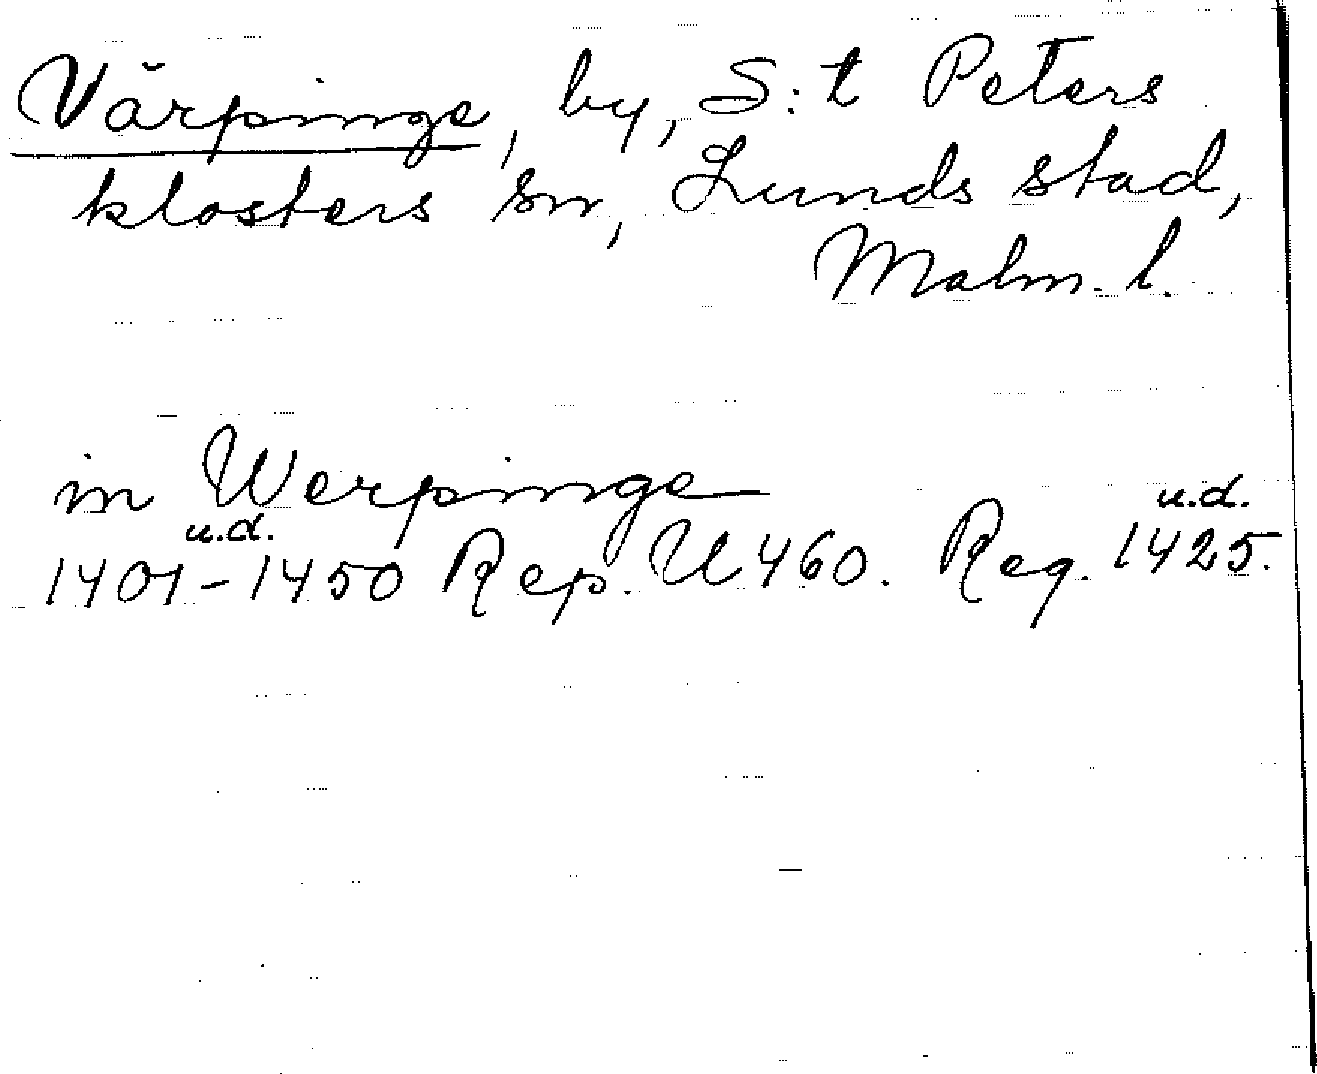 Värpinge, by, S:t Peters
klosters sn, Lunds stad,
Malm. l.
in Werpinge
u.d. u.d.
1401-1450 Rep. U 460. Reg. 1425.